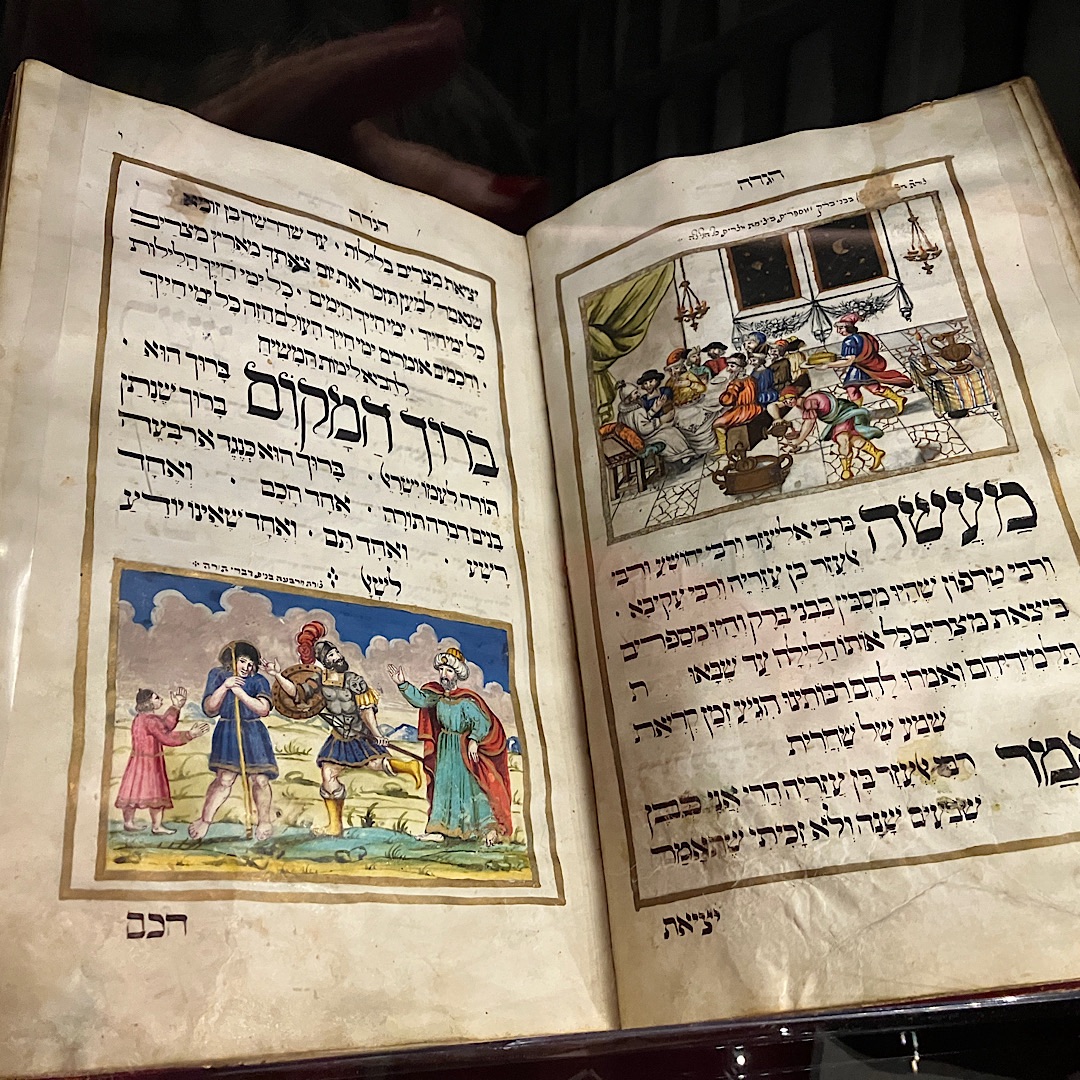 הגדה
בבני ברק ומספרים ביציאת מצרים כל הלילה
מעשה ברבי אליעזר ורבי יהושע ורבי
אלעזר בן עזריה ורבי עקיבא ·
ורבי טרפון שהיו מסבין בבני ברק והיו מספרים
ביציאת מצרים כל אותו הלילה עד שבאו ת
תלמידיהם ואמרו להם רבותינו הגיע זמן קריאת
שמע של שחרית
אמר רבי אלעזר בן עזריה הרי אני כבן
שבעים שנה ולא זכיתי שתאמר
יציאת
הגדה
יציאת מצרים בלילות · עד שדרשה בן זומא
שנאמר למען תזכר את יום צאתך מארץ מצרים
כל ימי חייך · ימי חייך הימים · כל ימי חייך הלילות
· וחכמים אומרים ימי חייך העולם הזה כל ימי חייך
להביא לימות המשיח
ברוך המקום ברוך הוא ·
ברוך שנתן
תורה לעמו ישראל · ברוך הוא כנגד ארבעה
בנים דברה תורה · אחד חכם · ואחד
רשע · ואחד תם · ואחד שאינו יודע
לישאל
צורת ארבעה בנים דברי תורה
חכם